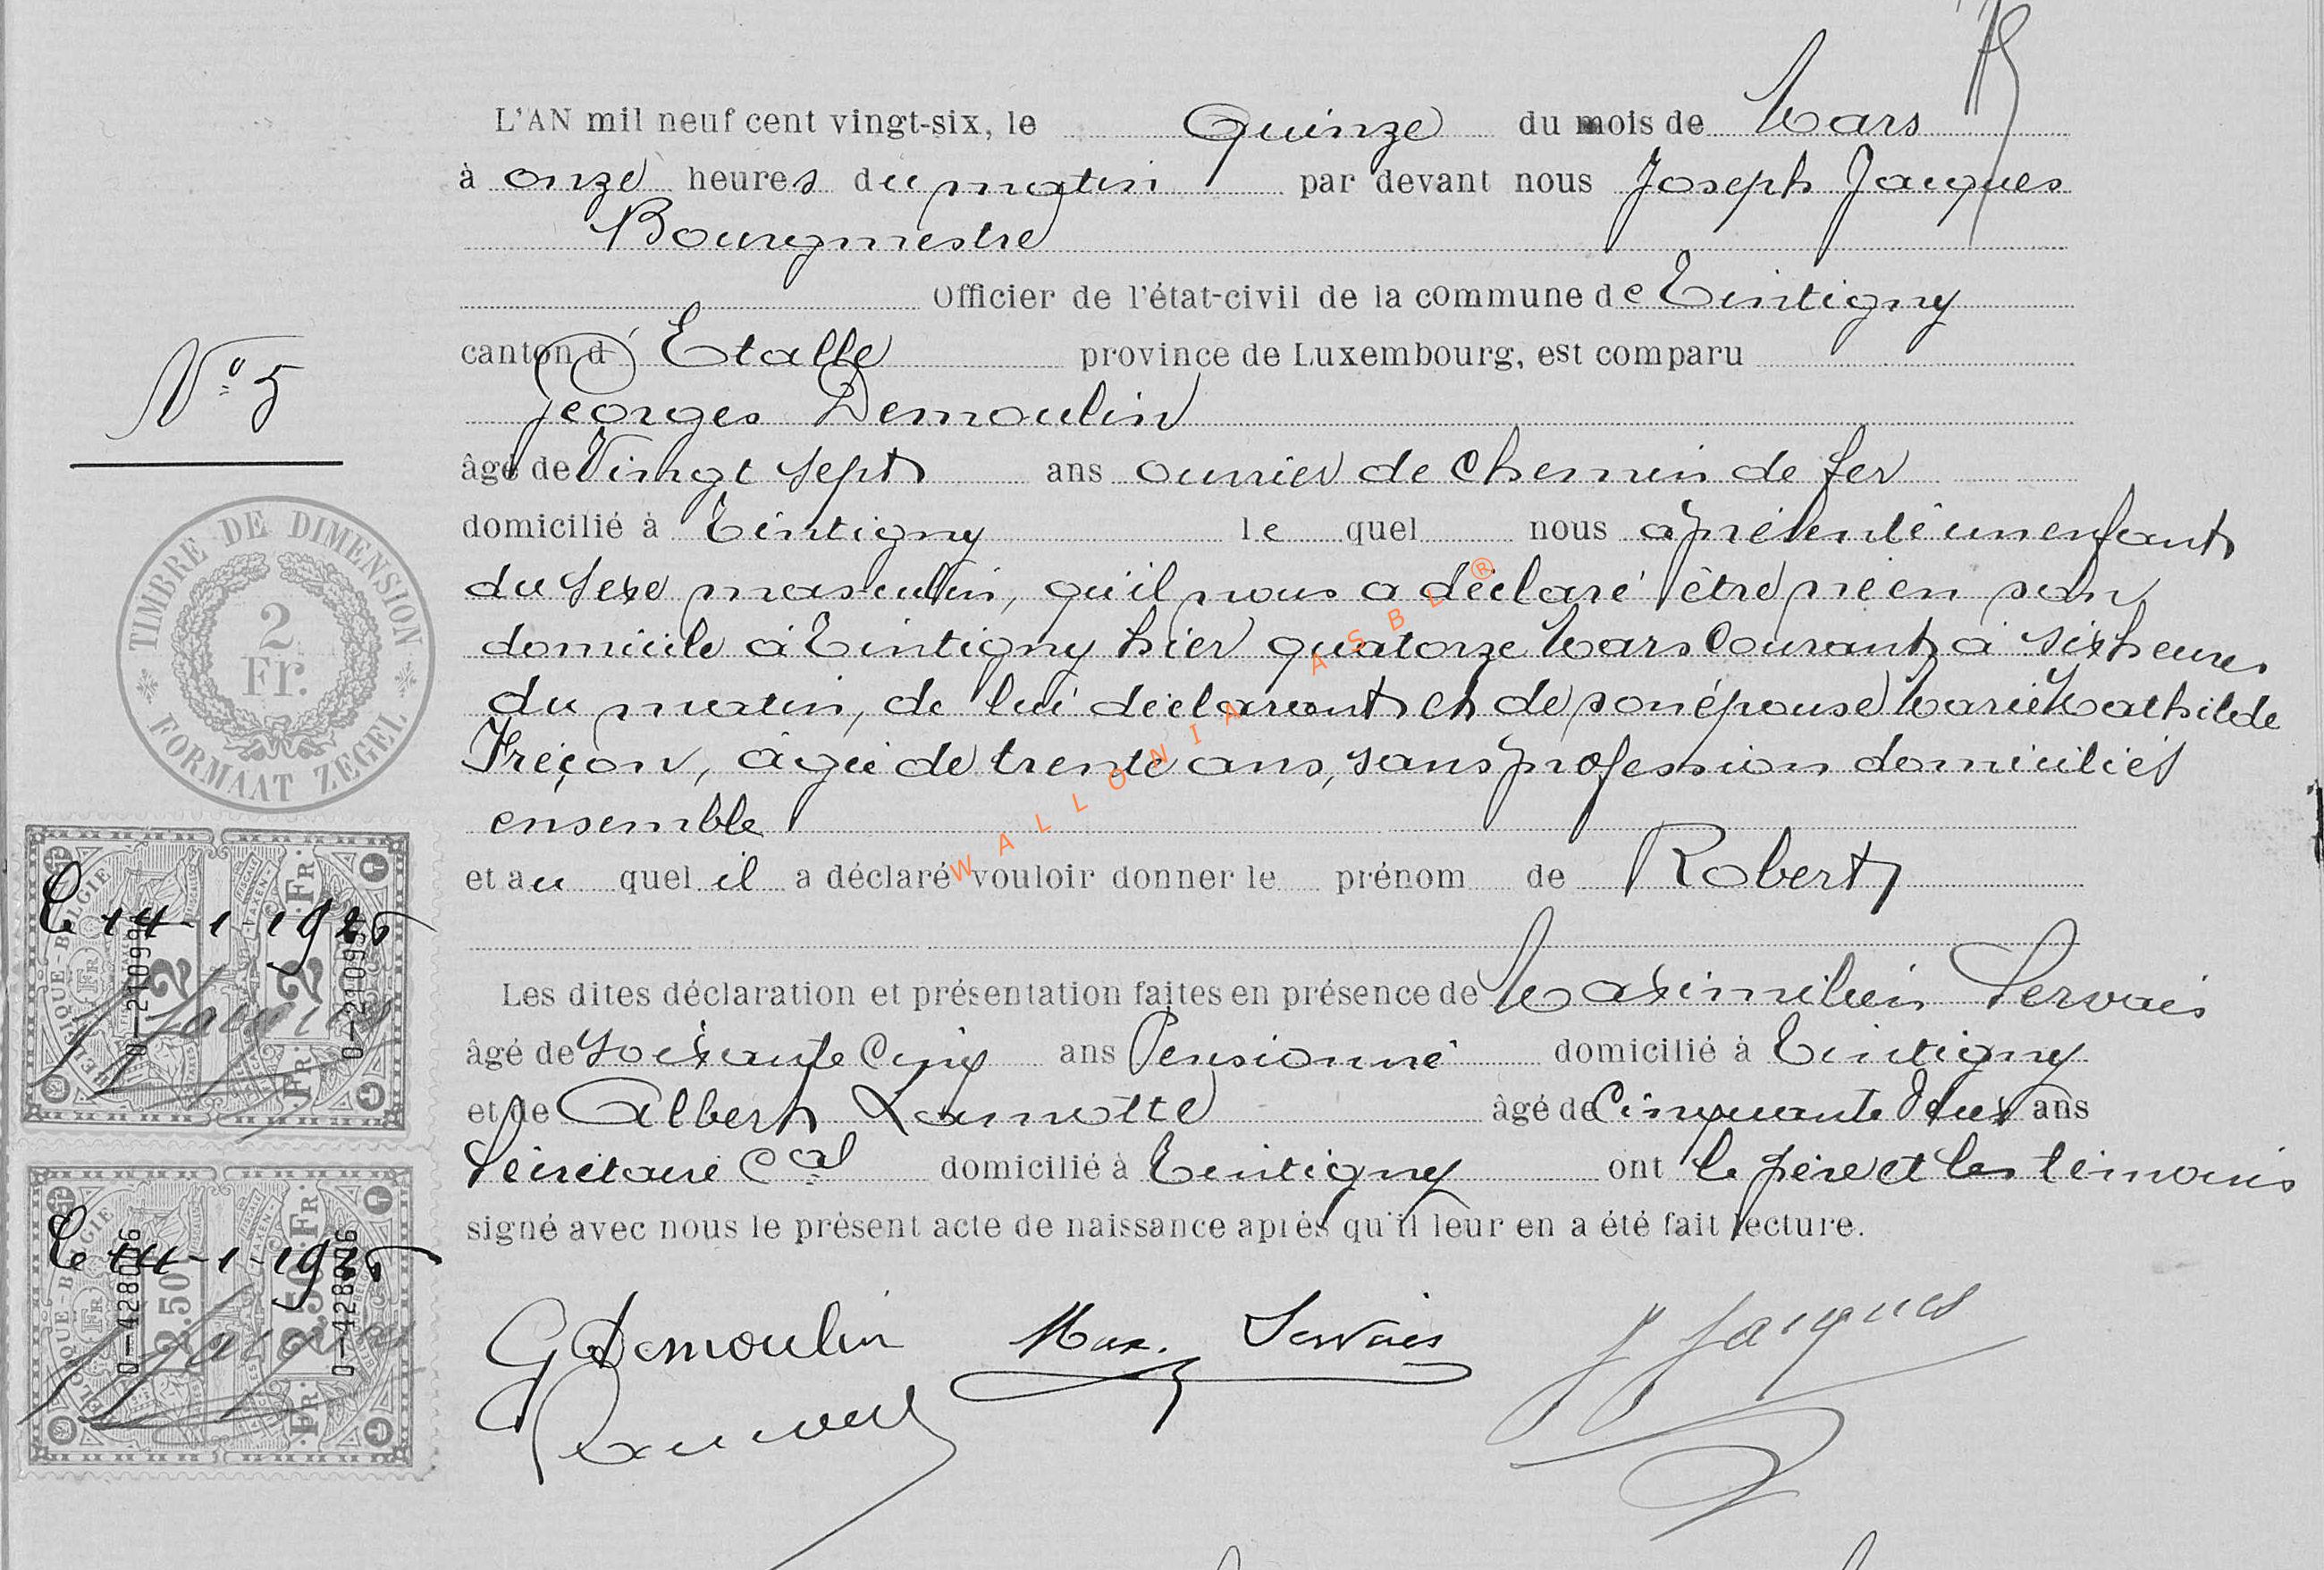 L'AN mil neuf cent vingt-six, le Quinze du mois de Mars
à onze heures du matin par devant nous Joseph Jacques
Bourgmestre
Officier de l'état-civil de la commune de Tintigny
canton d' Etalle province de Luxembourg, est comparu
Georges Demoulin
âgé de Vingt sept ans ouvrier de chemin de fer
domicilié à Tintigny le quel nous a présenté un enfant
du sexe masculin, qu'il nous a déclaré être né en son
domicile à Tintigny hier quatorze Mars Courant à six heures
du matin, de lui déclarant et de son épouse Marie Mathilde
Fréçon, âgée de trente ans, sans profession domiciliés
ensemble
et au quel il a déclaré vouloir donner le prénom de Robert
Les dites déclaration et présentation faites en présence de Maximilien Servais
âgé de Soixante Cinq ans Pensionné domicilié à Tintigny
et de Albert Lamotte âgé de Cinquante Deux ans
Secrétaire Cal domicilié à Tintigny ont le père et les témoins
signé avec nous le présent acte de naissance après qu'il leur en a été fait lecture.
G Demoulin Max. Servais J Jacques
N° 5
TIMBRE DE DIMENSION
2
Fr.
FORMAAT ZEGEL
BELGIQUE-BELGIE
Le 14-1-1926
2 2 FR
J Jacques
BELGIQUE-BELGIE
Le 14-1-1926
2.50 2.50 FR
J Jacques
WALLONIA ASBL ®